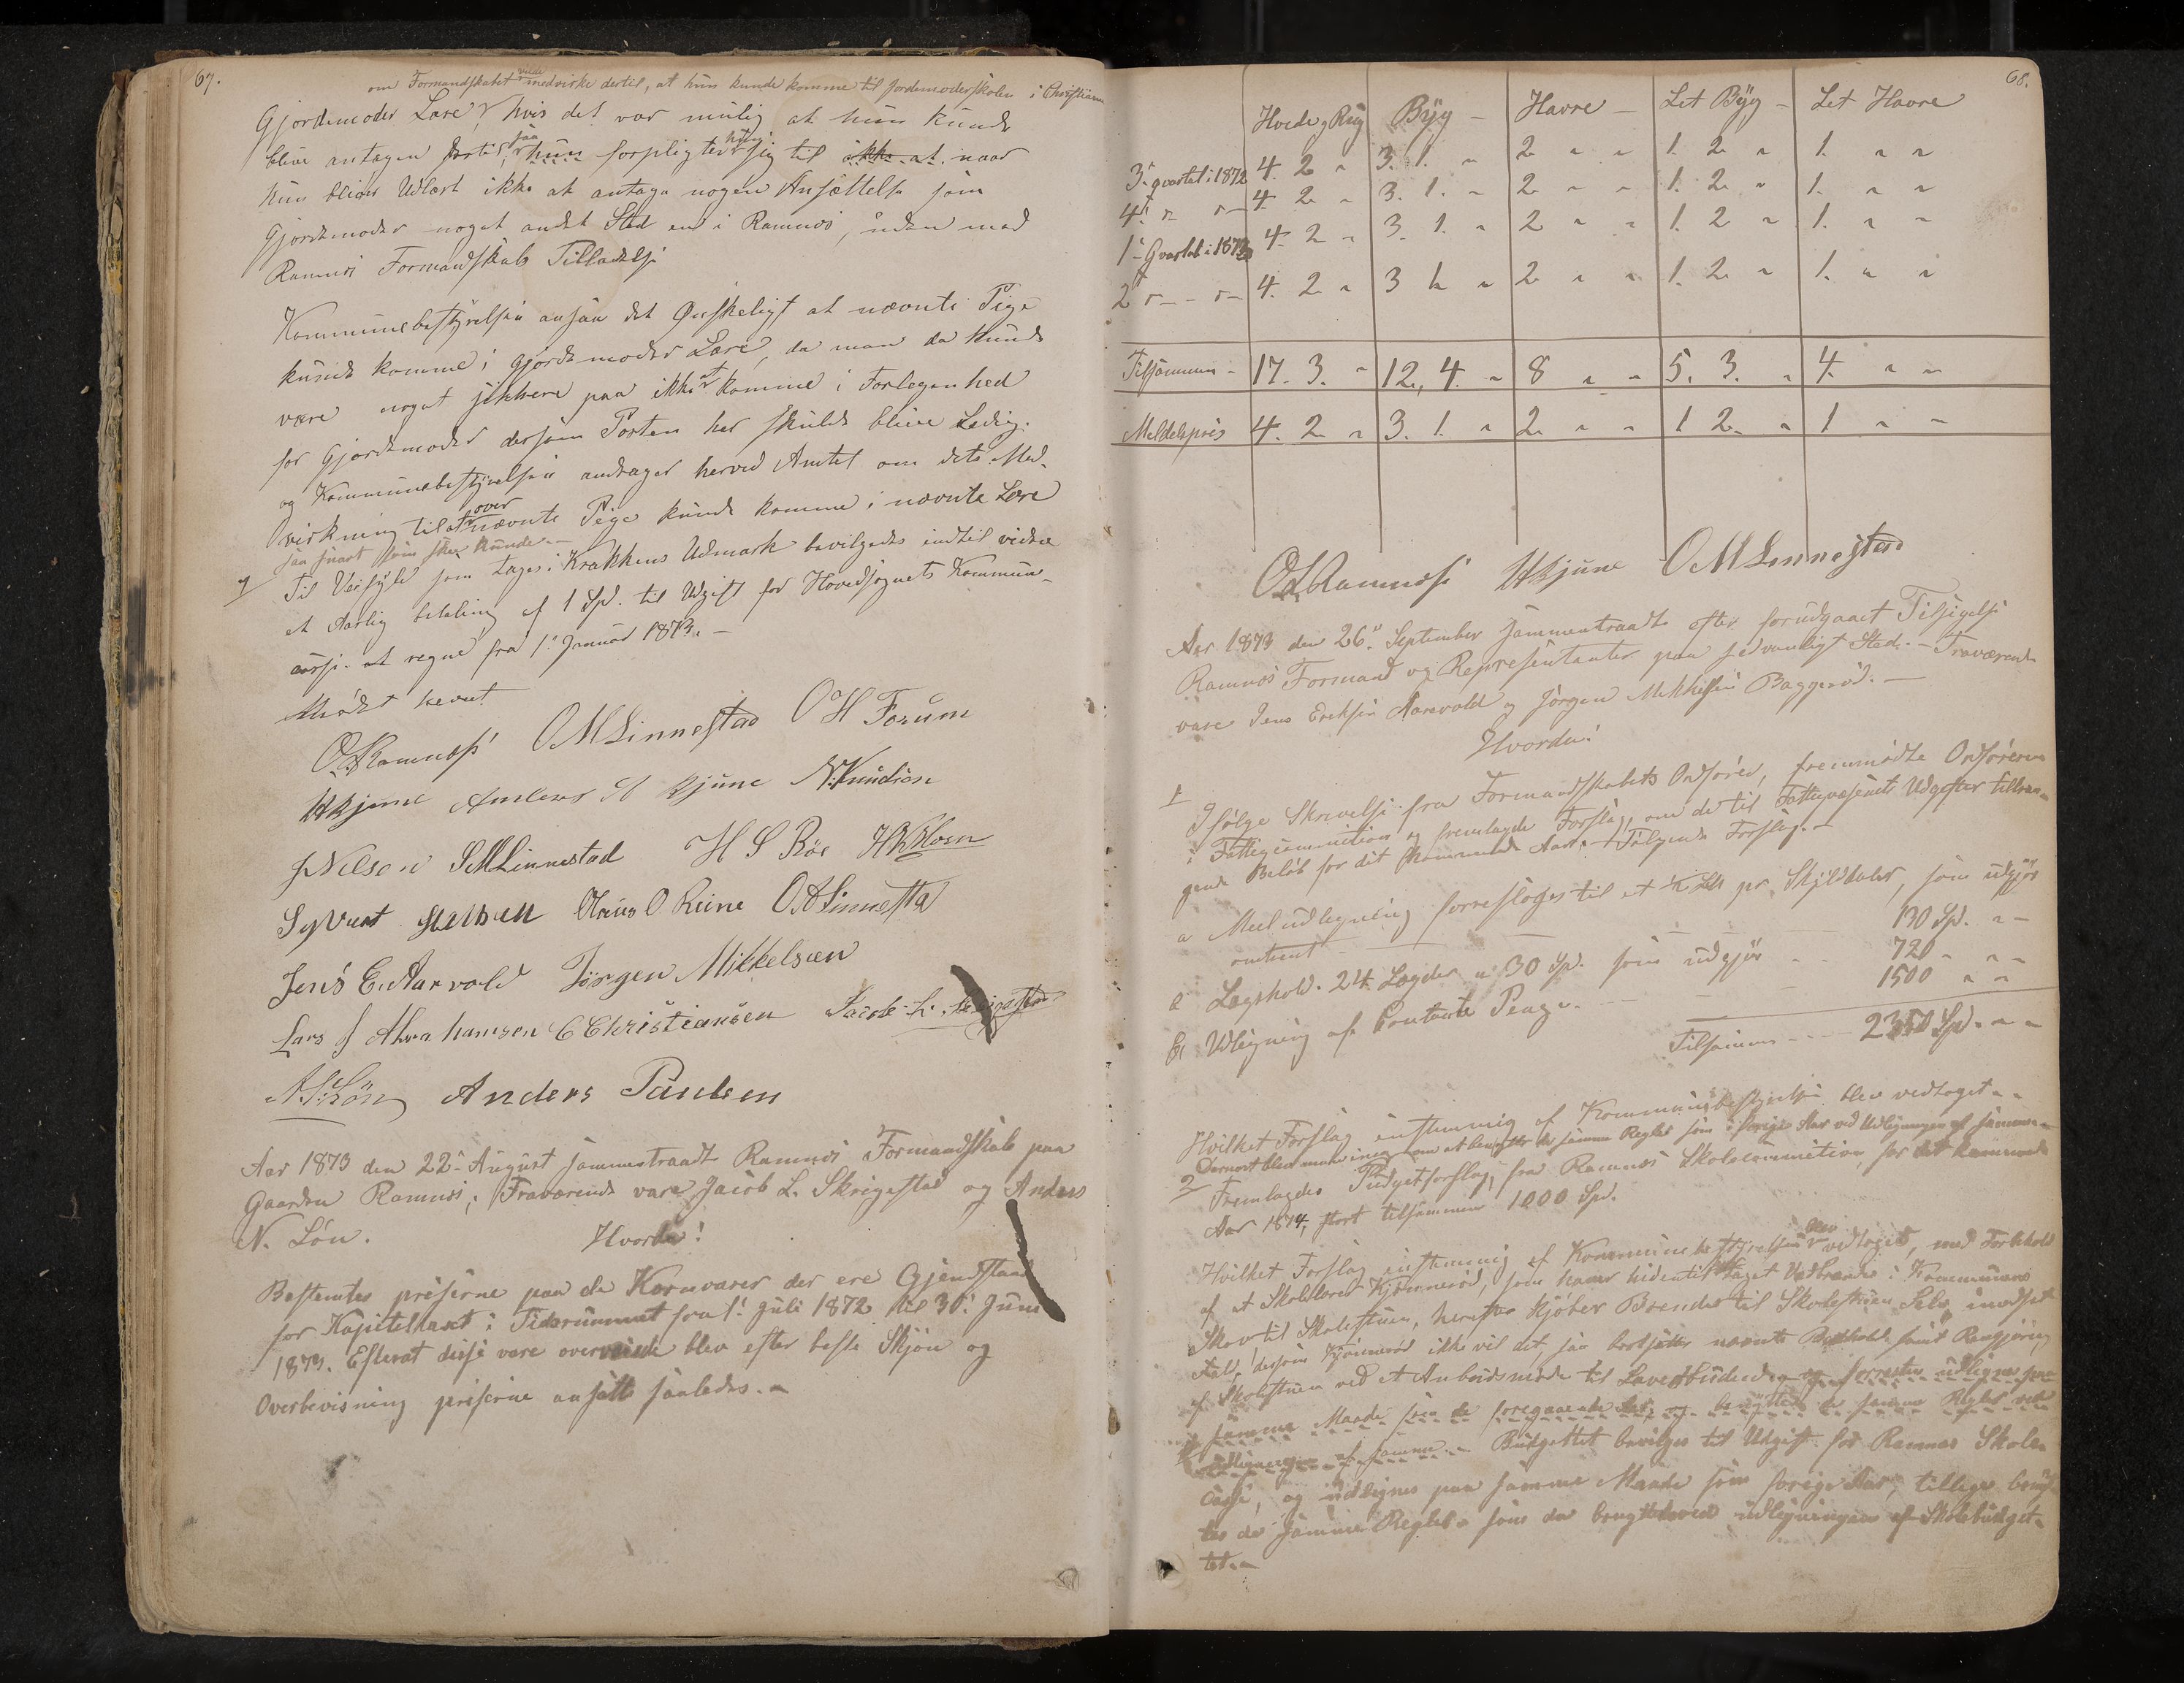 67.
om Formandskabet vilde medvirke dertil, at hun kunde komme til Jordemoderskolen i Christiania
Gjordemoder Lære, hvis det var mulig at hun kunde
blive antagen dertil, saa hun forpligter hun sig til ikke at naar
hun bliver Udlært ikke at antage nogen Ansættelse som
Gjordemoder noget andet Sted end i Ramnæs, uden med
Ramnæs Formandskabs Tilladelse
Kommunebestyrelsen ansaa det Ønskeligt at nævnte Pige
kunde komme i Gjordemoder Lære, da man da kunde
være noget sikkere paa ikke at komme i Forlegenhed
for Gjordemoder dersom Posten her skulde blive Ledig.
og Kommunebestyrelsen andrager herved Amtet om dets Med-
virkning til at over nævnte Pige kunde komme i nævnte Lære
saa snart som skee kunde.-
7 Til Veifyld som tages i Krakkens Udmark bevilgedes indtil videre
et Aarlig betaling af 1 Spd. til Udgift for Hovedsognets Kommune-
casse. at regne fra 1. Januar 1873. -
Mødet hevet
O. Ramnæs O M Linnestad O H Forum
H Kjune Anders H Kjune N. Knudsen
J Nilsen S M Linnestad H S Röe
Syvert Hansen Hans O Reine O A Linnesta
Jens E. Aarvold Jörgen Mikkelsen
Lars J Abrahamsen C Christiansen Jacob L. Skrigestad
A N Lön Anders Paulsen
Aar 1873 den 22. August sammentraadte Ramnæs Formandskab paa
Gaarden Ramnæs; Fraværende vare Jacob L. Skrigestad og Anders
N. Lön.
Hvorda!
Bestemtes priserne paa de Kornvarer der ere Gjendstand
for Kapiteltaxt i Tidsrummet fra 1. Juli 1872 til 30. Juni
1873. Efterat disse vare overveiede blev efter beste Skjøn og
Overbevisning priserne ansatte saaledes. -
68.
Hvede og Rug Byg - Havre - Let Byg - Let Havre
3. qvartal i 1872 4. 2 " 3. 1. " 2 " " 1. 2 " 1. " "
4. " " 4. 2 " 3. 1. " 2 " " 1. 2. " 1. " "
1. Qvartal i 1873 4. 2 " 3. 1. " 2 " " 1. 2 " 1. " "
2. " " 4. 2 " 3 1. " 2 " " 1. 2 " 1. " "
Tilsammen - 17. 3. " 12. 4. " 8 " " 5. 3. " 4. " "
Middelpris 4. 2 " 3. 1. " 2 " " 1 2. " 1 " "
O. Ramnæs H Kjune O M Linnestad
Aar 1873 den 26. September sammentraadte efter forudgaaet Tilsigelse
Ramnæs Formand og Repræsentanter paa sedvanligt Sted. - Fraværende
vare Jens Eriksen Aarevold og Jørgen Mikkelsen Baggerød. -
Hvorda!
1 Ifølge Skrivelse fra Formandskabets Ordfører, fremmødte Ordføreren
i Fattigcommition og fremlagde Forslag, om de til Fattigvæsenets Udgifter tiltræn-
gende Beløb for det kommende Aar. Følgende Forslag. -
a Meeludlegning forresloges til et pr. Skylddaler, som udgjør
omtrent - 130 Spd. " -
Lægshold. 24 Lægder a 30 Spd. som udgjør - 720 " " -
Udligning af Contante Penge. - 1500 " "
Tilsammen - 2350 Spd. " "
Hvilket Forslag enstemmig af Kommunebestyrelsen blev vedtaget. -
Dernæst blev man enig om at benytte de samme Regler som i forige Aar ved Udligningen af samme. -
2 Fremlagdes Budgetforslag fra Ramnæs Skolecommition, for det kommende
Aar 1874, stort tilsammen 1000 Spd.
Hvilket Forslag enstemmig af Kommunebestyrelsen blev vedtaget, med Forbehold
af at Skolelærer Kjønnerød, som haver hidentil taget Vedbrænde i Kommunens
Skov til Skolestuen, herefter kjøber Brænde til Skolestuen Selv, imodsat
Fald, dersom Kjønnerød ikke vil det, saa bortsættes nævnte samt Rengjøring
af Skolestuen ved et Anbudsmøde til Lavestbydende og forresten udlignes paa
samme Maade som de foregaaende Aar, og benyttes de samme Regler ved
Udligningen af samme. - Budgettet bevilges til Udgift for Ramnæs Skole-
casse, og udlignes paa samme Maade som forige Aar; tillige benyt-
tes de samme Regler som der benyttedes ved udligningen af Skolebudget-
tet. -